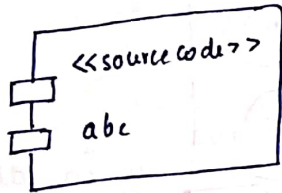 <<source code>>
abc